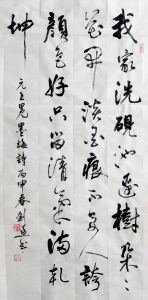 我家洗硯池邊樹朵〻
花開淡墨痕不要人誇
顏色好只留清氣滿乾
坤
元王冕墨梅詩丙申春